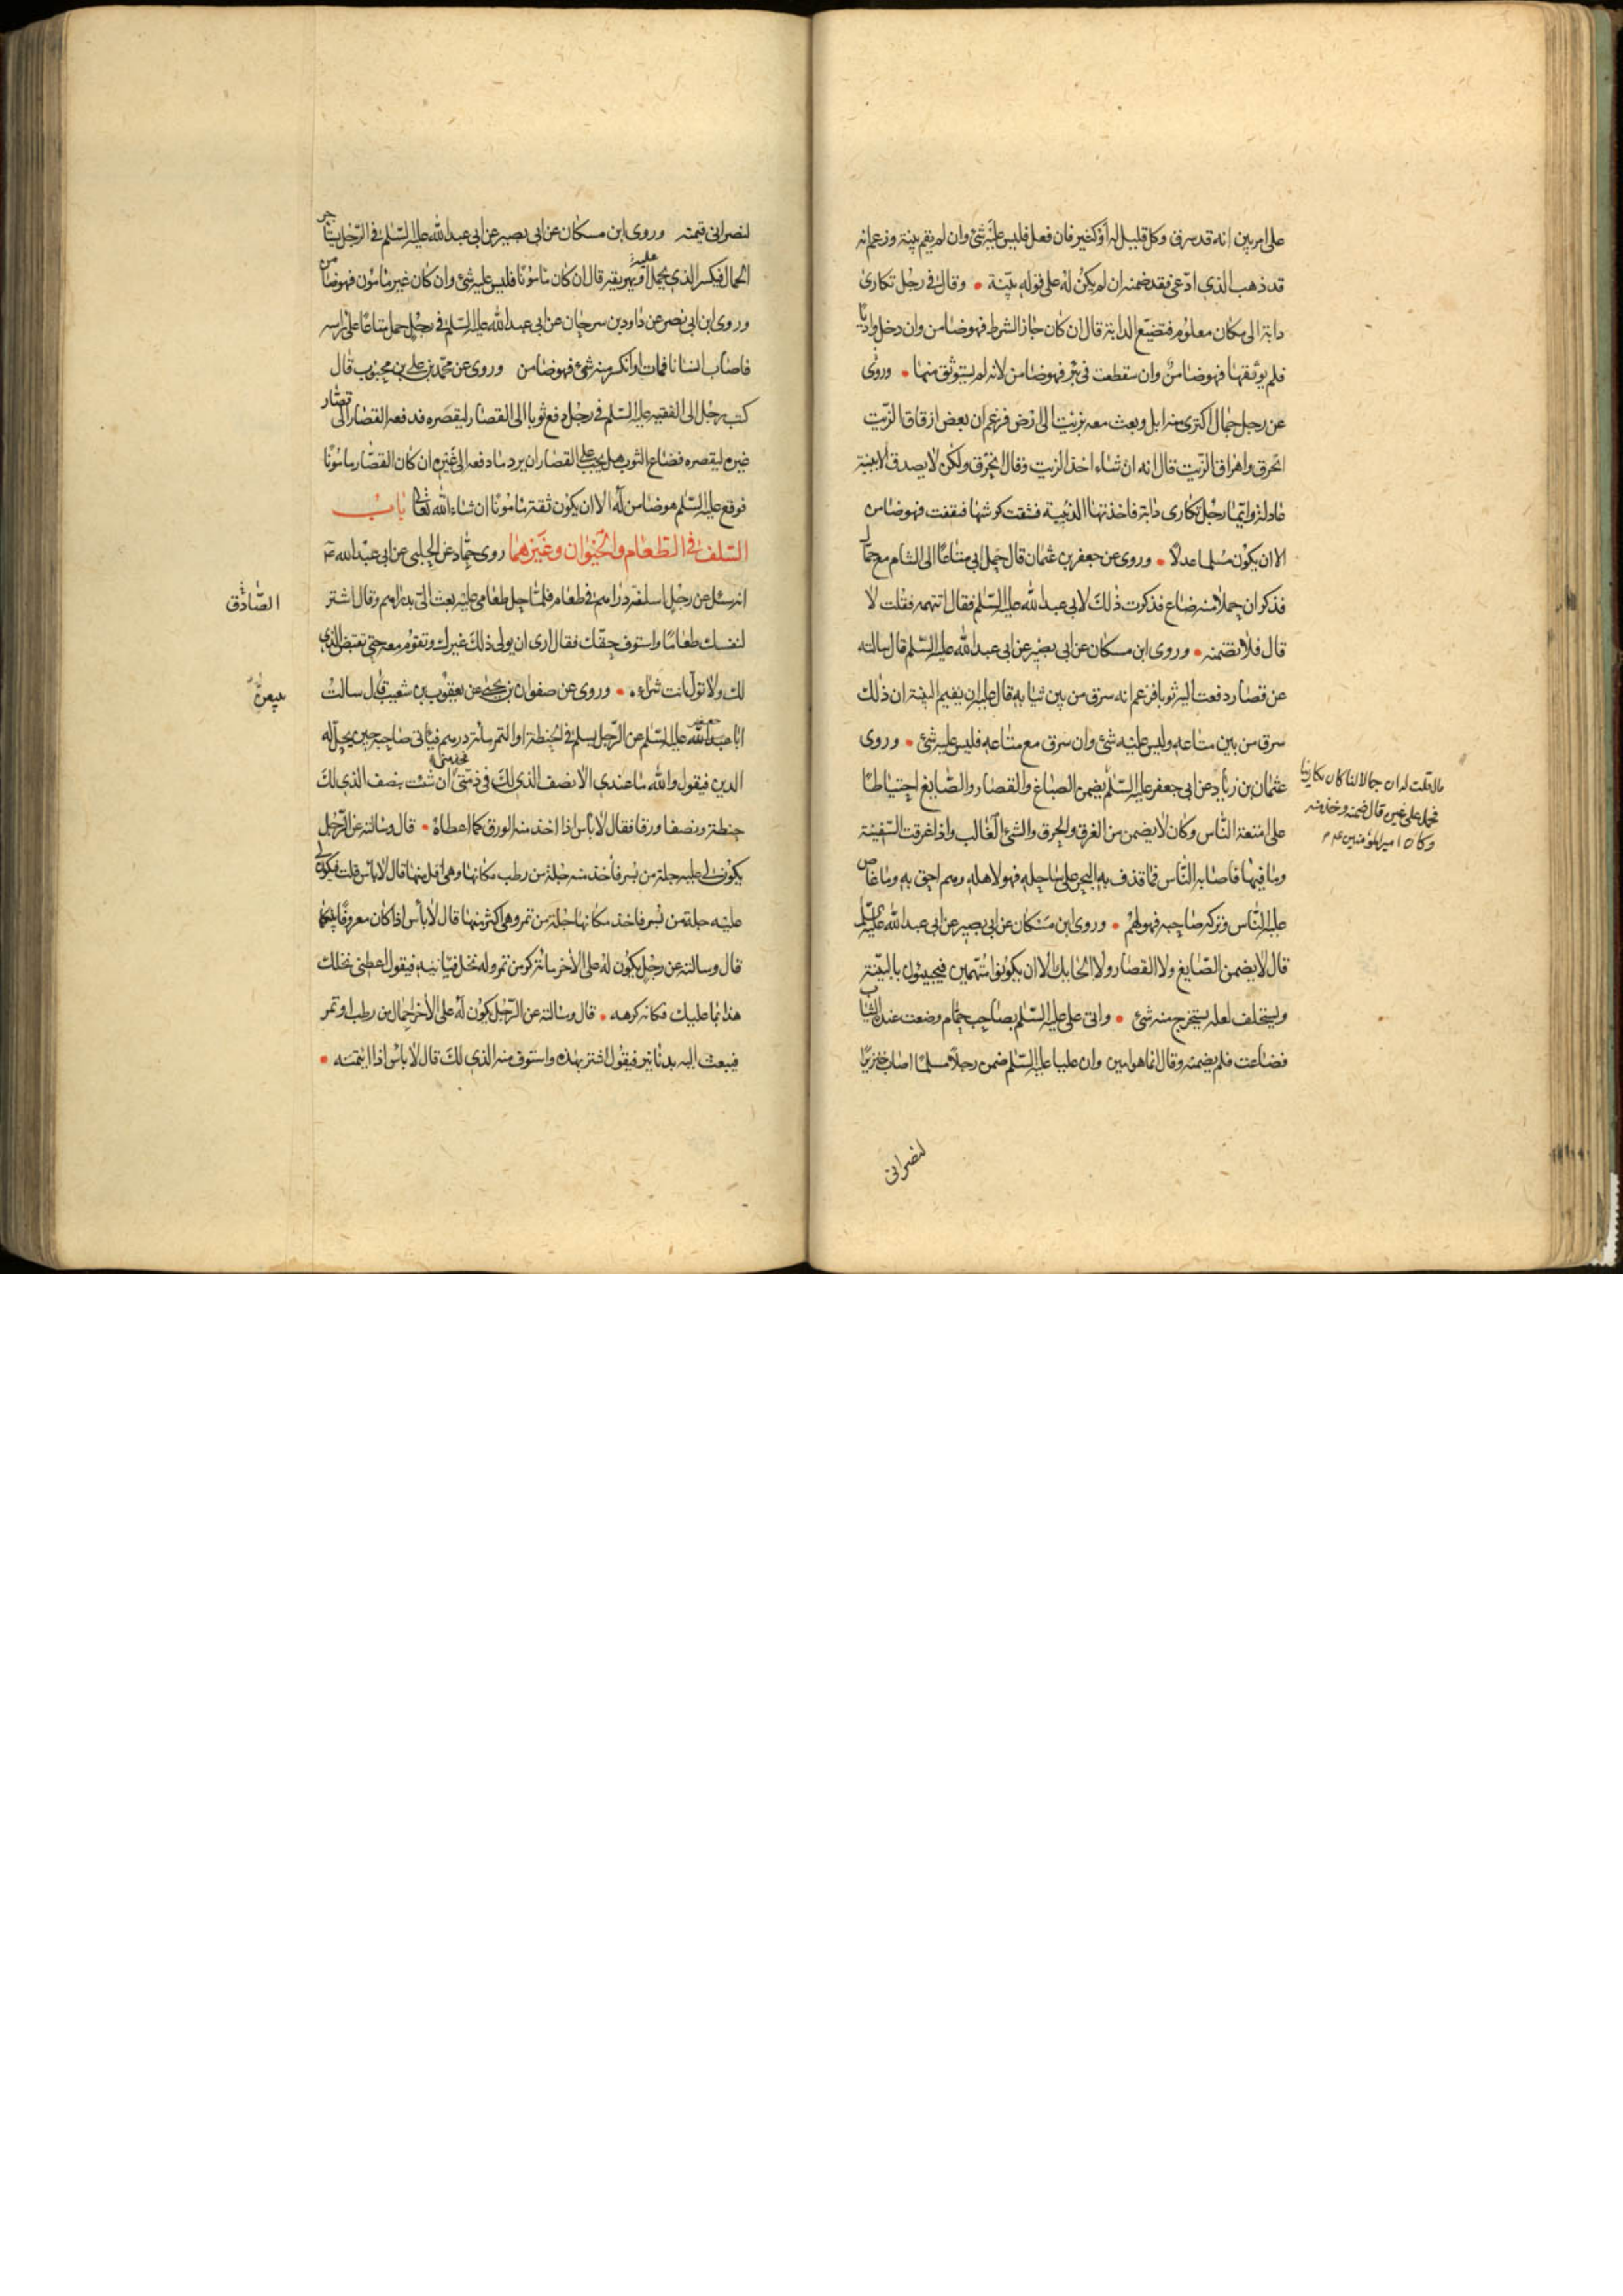 على امر بين انه قد سرق وكل قليل له او كثير فان فعل فليس عليه شئ وان لم يقم بينة وزعم انه
قد ذهب الذي ادعى فقد ضمنه ان لم يكن له على قوله بينة • وقال في رجل تكارى
دابة الى مكان معلوم فتضيع الدابة قال ان كان جاز الشرط فهو ضامن وان دخل واديا
فلم يوثقها فهو ضامن وان سقطت في بئر فهو ضامن لانه لم يستوثق منها • وروى
عن رجل جمال اكترى منه ابل وبعث معه بزيت الى ارض فزعم ان بعض ازقاق الزيت
انخرق واهراق الزيت قال انه ان شاء اخذ الزيت وقال انخرق ولكن لا يصدق الا ببينة
عادلة وايما رجل تكارى دابة فاخذتها الذئبة فشقت كرشها فنفقت فهو ضامن
الا ان يكون مسلما عدلا • وروى عن جعفر بن عثمان قال حمل ابي متاعا الى الشام مع جمال
فذكر ان حملا منه ضاع فذكرت ذلك لابي عبد الله عليه السلم فقال اتتهمه فقلت لا
قال فلا تضمنه • وروى ابن مسكان عن ابي بصير عن ابي عبد الله عليه السلم قال سالته
عن قصار دفعت اليه ثوبا فزعم انه سرق من بين ثيابه قال عليه ان يقيم البينة ان ذلك
سرق من بين متاعه وليس عليه شئ وان سرق مع متاعه فليس عليه شئ • وروى
عثمان بن زياد عن ابي جعفر عليه السلم
قال قلت له ان جمالا لنا كان يكارينا
فحمل على غيره قال ضمنه وخذ منه
وكان امير المؤمنين ع م
يضمن الصباغ والقصار والصايغ احتياطا
على امتعة الناس وكان لا يضمن من الغرق والحرق والشئ الغالب واذا غرقت السفينة
وما فيها فاصابه الناس فما قذف به البحر على ساحله فهو لاهله وهم احق به وما غاص
عليه الناس وتركه صاحبه فهو لهم • وروى ابن مسكان عن ابي بصير عن ابي عبد الله عليه السلم
قال لا يضمن الصايغ ولا القصار ولا الحايك الا ان يكونوا متهمين فيجيئون بالبينة
ويستحلف لعله يستخرج منه شئ • واتى على عليه السلم بصاحب حمام وضعت عنده الثياب
فضاعت فلم يضمنه وقال انما هو امين وان عليا عليه السلم ضمن رجلا مسلما اصاب خنزيرا
لنصرانى
لنصرانى قيمته وروى ابن مسكان عن ابي بصير عن ابي عبد الله عليه السلم في الرجل يستاجر
الحمال فيكسر الذي يحمل عليه او يهريقه قال ان كان مامونا فليس عليه شئ وان كان غير مامون فهو ضامن
وروى ابن ابي نصر عن داود بن سرحان عن ابي عبد الله عليه السلم في رجل حمل متاعا على راسه
فاصاب انسانا فمات او انكسر منه شئ فهو ضامن وروى عن محمد بن علي بن محبوب قال
كتب رجل الى الفقيه عليه السلم في رجل دفع ثوبا الى القصار ليقصره فدفعه القصار الى قصار
غيره ليقصره فضاع الثوب هل يجب على القصار ان يرد ما دفعه الى غيره ان كان القصار مامونا
فوقع عليه السلم هو ضامن له الا ان يكون ثقة مامونا ان شاء الله تعالى باب
السلف في الطعام والحيوان وغيرهما روى حماد عن الحلبي عن ابي عبد الله
الصادق
انه سئل عن رجل اسلفته دراهم في طعام فلما حل طعامى عليه بعث الى بدراهم وقال اشتر
لنفسك طعاما واستوف حقك فقال ارى ان يولى ذلك غيرك وتقوم معه حتى تقبض الذي
لك ولا تول انت شراءه • وروى عن صفوان بن يحيى عن يعقوب بن شعيب قال سالت
ابا عبد الله عليه السلم عن الرجل يسلم في الحنطة او التمر مائة درهم فيأتى صاحبه حين يحل له
الدين فيقول والله ما عندي الا نصف الذي لك فخذ مني ان شئت بنصف الذي لك
حنطة ونصفا ورقا فقال لا بأس اذا اخذ منه الورق كما اعطاه • قال وسالته عن الرجل
يكون لي عليه جلة من بسر فآخذ منه جلة من رطب مكانها وهي اقل منها قال لا بأس قلت فيكون لى
عليه جلة من بسر فاخذ مكانها جلة من تمر وهي اكثر منها قال لا بأس اذا كان معروفا بينكما
قال وسالته عن رجل يكون له على الآخر مائة كر من تمر وله نخل فيأتيه فيقول اعطنى نخلك
هذا بما عليك فكانه كرهه • قال وسالته عن الرجل يكون له على الآخر احمال من رطب او تمر
فيبعث اليه بدنانير فيقول اشتر بهذه واستوف منه الذي لك قال لا بأس اذا ائتمنه •